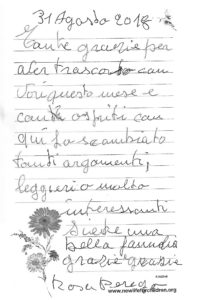 31 Agosto 2018
Tante grazie per
aver trascorso con
Voi questo mese e
tanti ospiti con
qui ho scambiato
tanti argomenti,
leggeri o molto
interessanti
Siete una
bella famiglia
grazie grazie
Rosa
www.newlifeforchildren.org